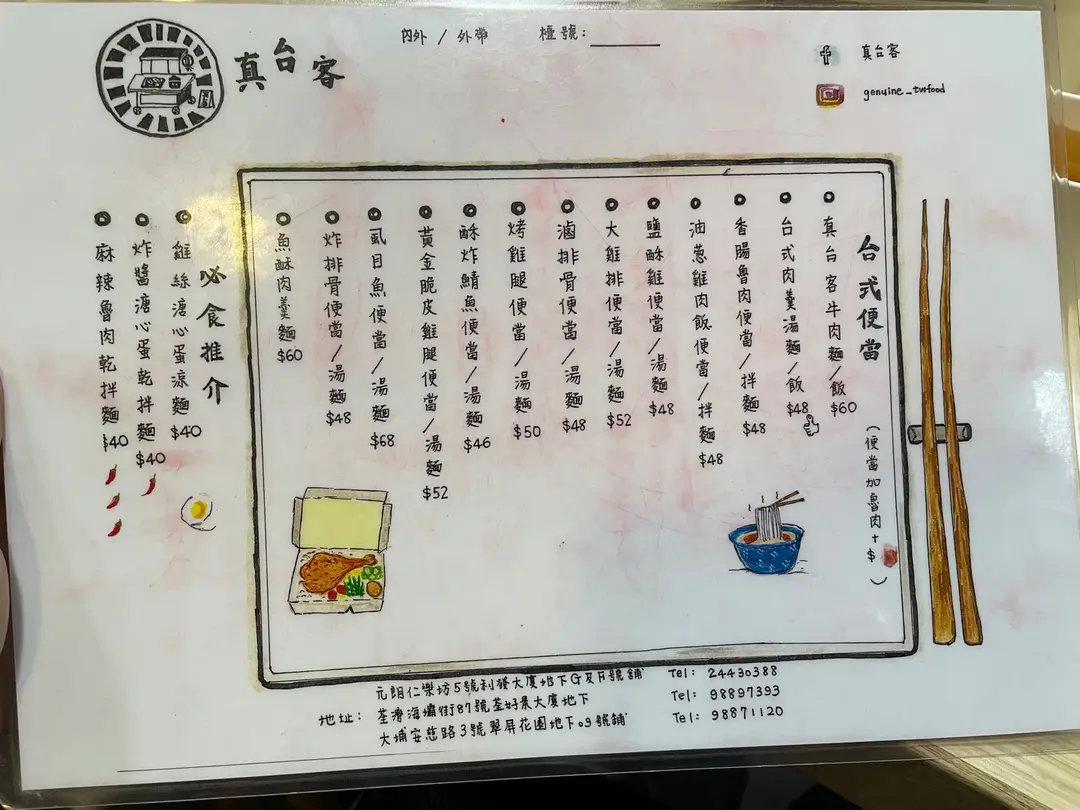 真台客
內外 / 外帶 檯號：
真台客
genuine_twfood
台式便當
(便當加魯肉+$
真台客牛肉麵/飯 $60
台式肉羹湯麵/飯 $48
香腸魯肉便當/拌麵 $48
油蔥雞肉飯便當/拌麵 $48
鹽酥雞便當/湯麵 $48
大雞排便當/湯麵 $52
滷排骨便當/湯麵 $48
烤雞腿便當/湯麵 $50
酥炸鯖魚便當/湯麵 $46
黃金脆皮雞腿便當/湯麵 $52
虱目魚便當/湯麵 $68
炸排骨便當/湯麵 $48
魚酥肉羹麵 $60
必食推介
雞絲溏心蛋涼麵 $40
炸醬溏心蛋乾拌麵 $40
麻辣魯肉乾拌麵 $40
地址：
元朗仁樂坊5號利發大廈地下G及H號舖 Tel: 24430388
荃灣海壩街87號荃好景大廈地下 Tel: 98897393
大埔安慈路3號翠屏花園地下09號舖 Tel: 98871120